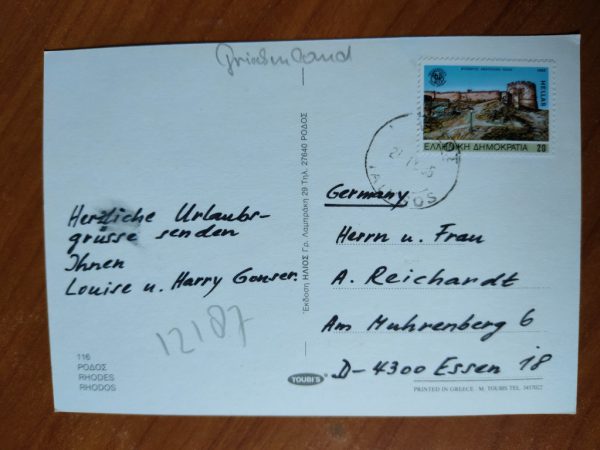 Griechenland
HELLAS
ΕΛΛΗΝΙΚΗ ΔΗΜΟΚΡΑΤΙΑ 20
Herzliche Urlaubs-
grüsse senden
Ihnen
Louise u. Harry Gonser
12187
116
ΡΟΔΟΣ
RHODES
RHODOS
Έκδοση ΗΛΙΟΣ Γρ. Λαμπράκη 29 Τηλ. 27640 ΡΟΔΟΣ
TOUBI'S
Germany
Herrn u. Frau
A. Reichardt
Am Muhrenberg 6
D-4300 Essen 18
PRINTED IN GREECE M. TOUBIS TEL.